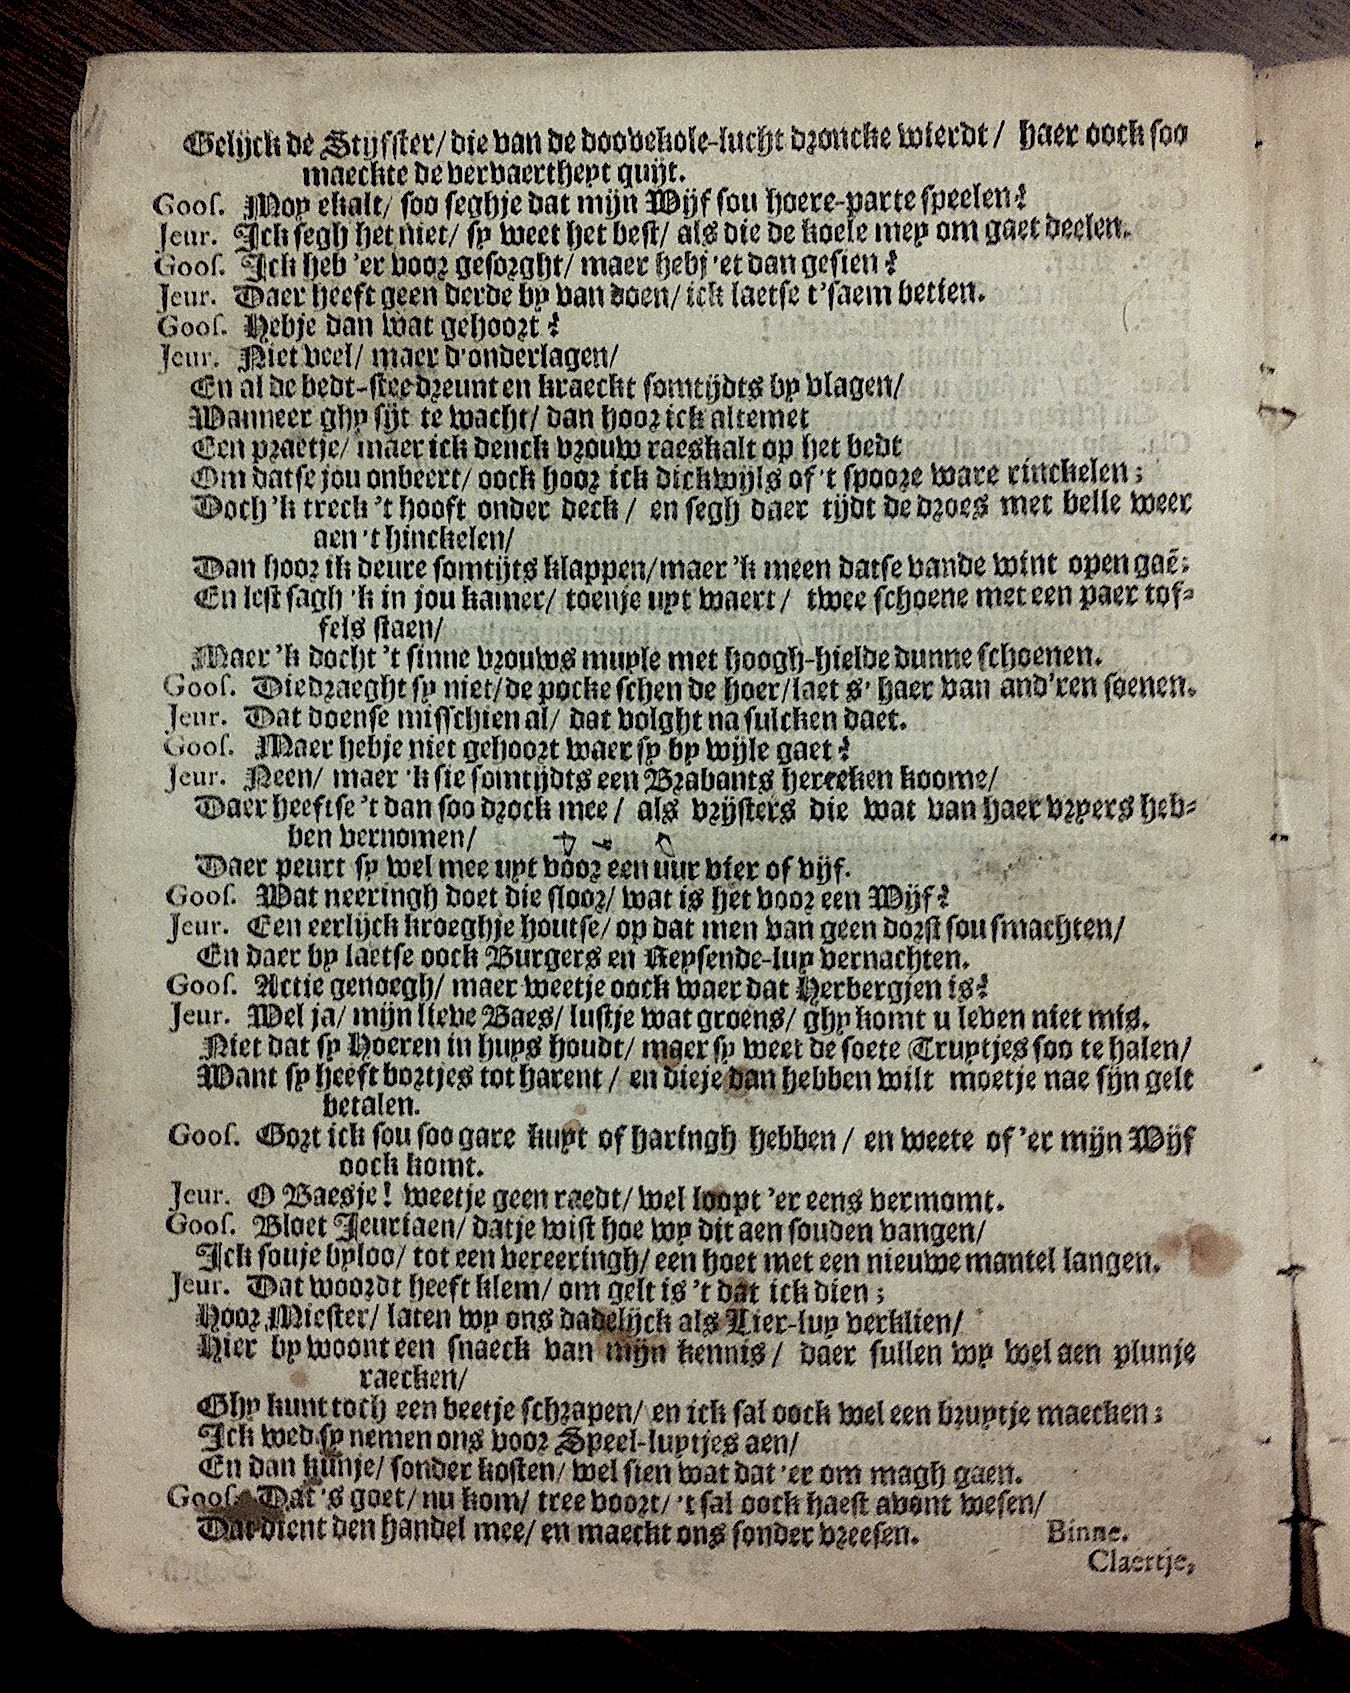 Gelijck de Stijfster/ die van de doovekole-lucht droncke wierdt/ haer oock soo
maeckte de vervaertheyt quijt.
Goos. Moy ekalt/ soo seghje dat mijn Wijf sou hoere-parte speelen?
Jeur. Ick segh het niet/ sy weet het best/ als die de koele mey om gaet deelen.
Goos. Ick heb 'er voor gesorght/ maer hebj 'et dan gesien?
Jeur. Daer heeft geen derde by van doen/ ick laetse t'saem betien.
Goos. Hebje dan wat gehoort?
Jeur. Niet veel/ maer d'onderlagen/
En al de bedt-stee dreunt en kraeckt somtijdts by vlagen/
Wanneer ghy sijt te wacht/ dan hoor ick altemet
Een praetje/ maer ick denck vrouw raeskalt op het bedt
Om datse jou onbeert/ oock hoor ick dickwijls of 't spoore ware rinckelen;
Doch 'k treck 't hooft onder deck/ en segh daer tijdt de droes met belle weer
aen 't hinckelen/
Dan hoor ik deure somtijts klappen/ maer 'k meen datse vande wint open gaẽ;
En lest sagh 'k in jou kamer/ toenje uyt waert/ twee schoene met een paer tof-
fels staen/
Maer 'k docht 't sinne vrouws muyle met hoogh-hielde dunne schoenen.
Goos. Die draeght sy niet/ de pocke schen de hoer/ laet s' haer van and'ren soenen.
Jeur. Dat doense misschien al/ dat volght na sulcken daet.
Goos. Maer hebje niet gehoort waer sy by wijle gaet?
Jeur. Neen/ maer 'k sie somtijdts een Brabants hereken koome/
Daer heeftse 't dan soo drock mee/ als vrijsters die wat van haer vryers heb-
ben vernomen/
Daer peurt sy wel mee uyt voor een uur vier of vijf.
Goos. Wat neeringh doet die sloor/ wat is het voor een Wijf?
Jeur. Een eerlijck kroeghje houtse/ op dat men van geen dorst sou smachten/
En daer by laetse oock Burgers en Reysende-luy vernachten.
Goos. Actie genoegh/ maer weetje oock waer dat Herbergjen is?
Jeur. Wel ja/ mijn lieve Baes/ lustje wat groens/ ghy komt u leven niet mis.
Niet dat sy Hoeren in huys houdt/ maer sy weet de soete Truytjes soo te halen/
Want sy heeft bortjes tot harent/ en dieje dan hebben wilt moetje nae sijn gelt
betalen.
Goos. Gort ick sou soo gare kuyt of haringh hebben/ en weete of 'er mijn Wijf
oock komt.
Jeur. O Baesje! weetje geen raedt/ wel loopt 'er eens vermomt.
Goos. Bloet Jeuriaen/ datje wist hoe wy dit aen souden vangen/
Ick souje byloo/ tot een vereeringh/ een hoet met een nieuwe mantel langen.
Jeur. Dat woordt heeft klem/ om gelt is 't dat ick dien;
Hoor Miester/ laten wy ons dadelijck als Lier-luy verklien/
Hier by woont een snaeck van mijn kennis/ daer sullen wy wel aen plunje
raecken/
Ghy kunt toch een beetje schrapen/ en ick sal oock wel een bruytje maecken;
Ick wed sy nemen ons voor Speel-luytjes aen/
En dan kunje/ sonder kosten/ wel sien wat dat 'er om magh gaen.
Goos. Dat's goet/ nu kom/ tree voort/ 't sal oock haest avont wesen/
Dat dient den handel mee/ en maeckt ons sonder vreesen. Binne.
Claertje,